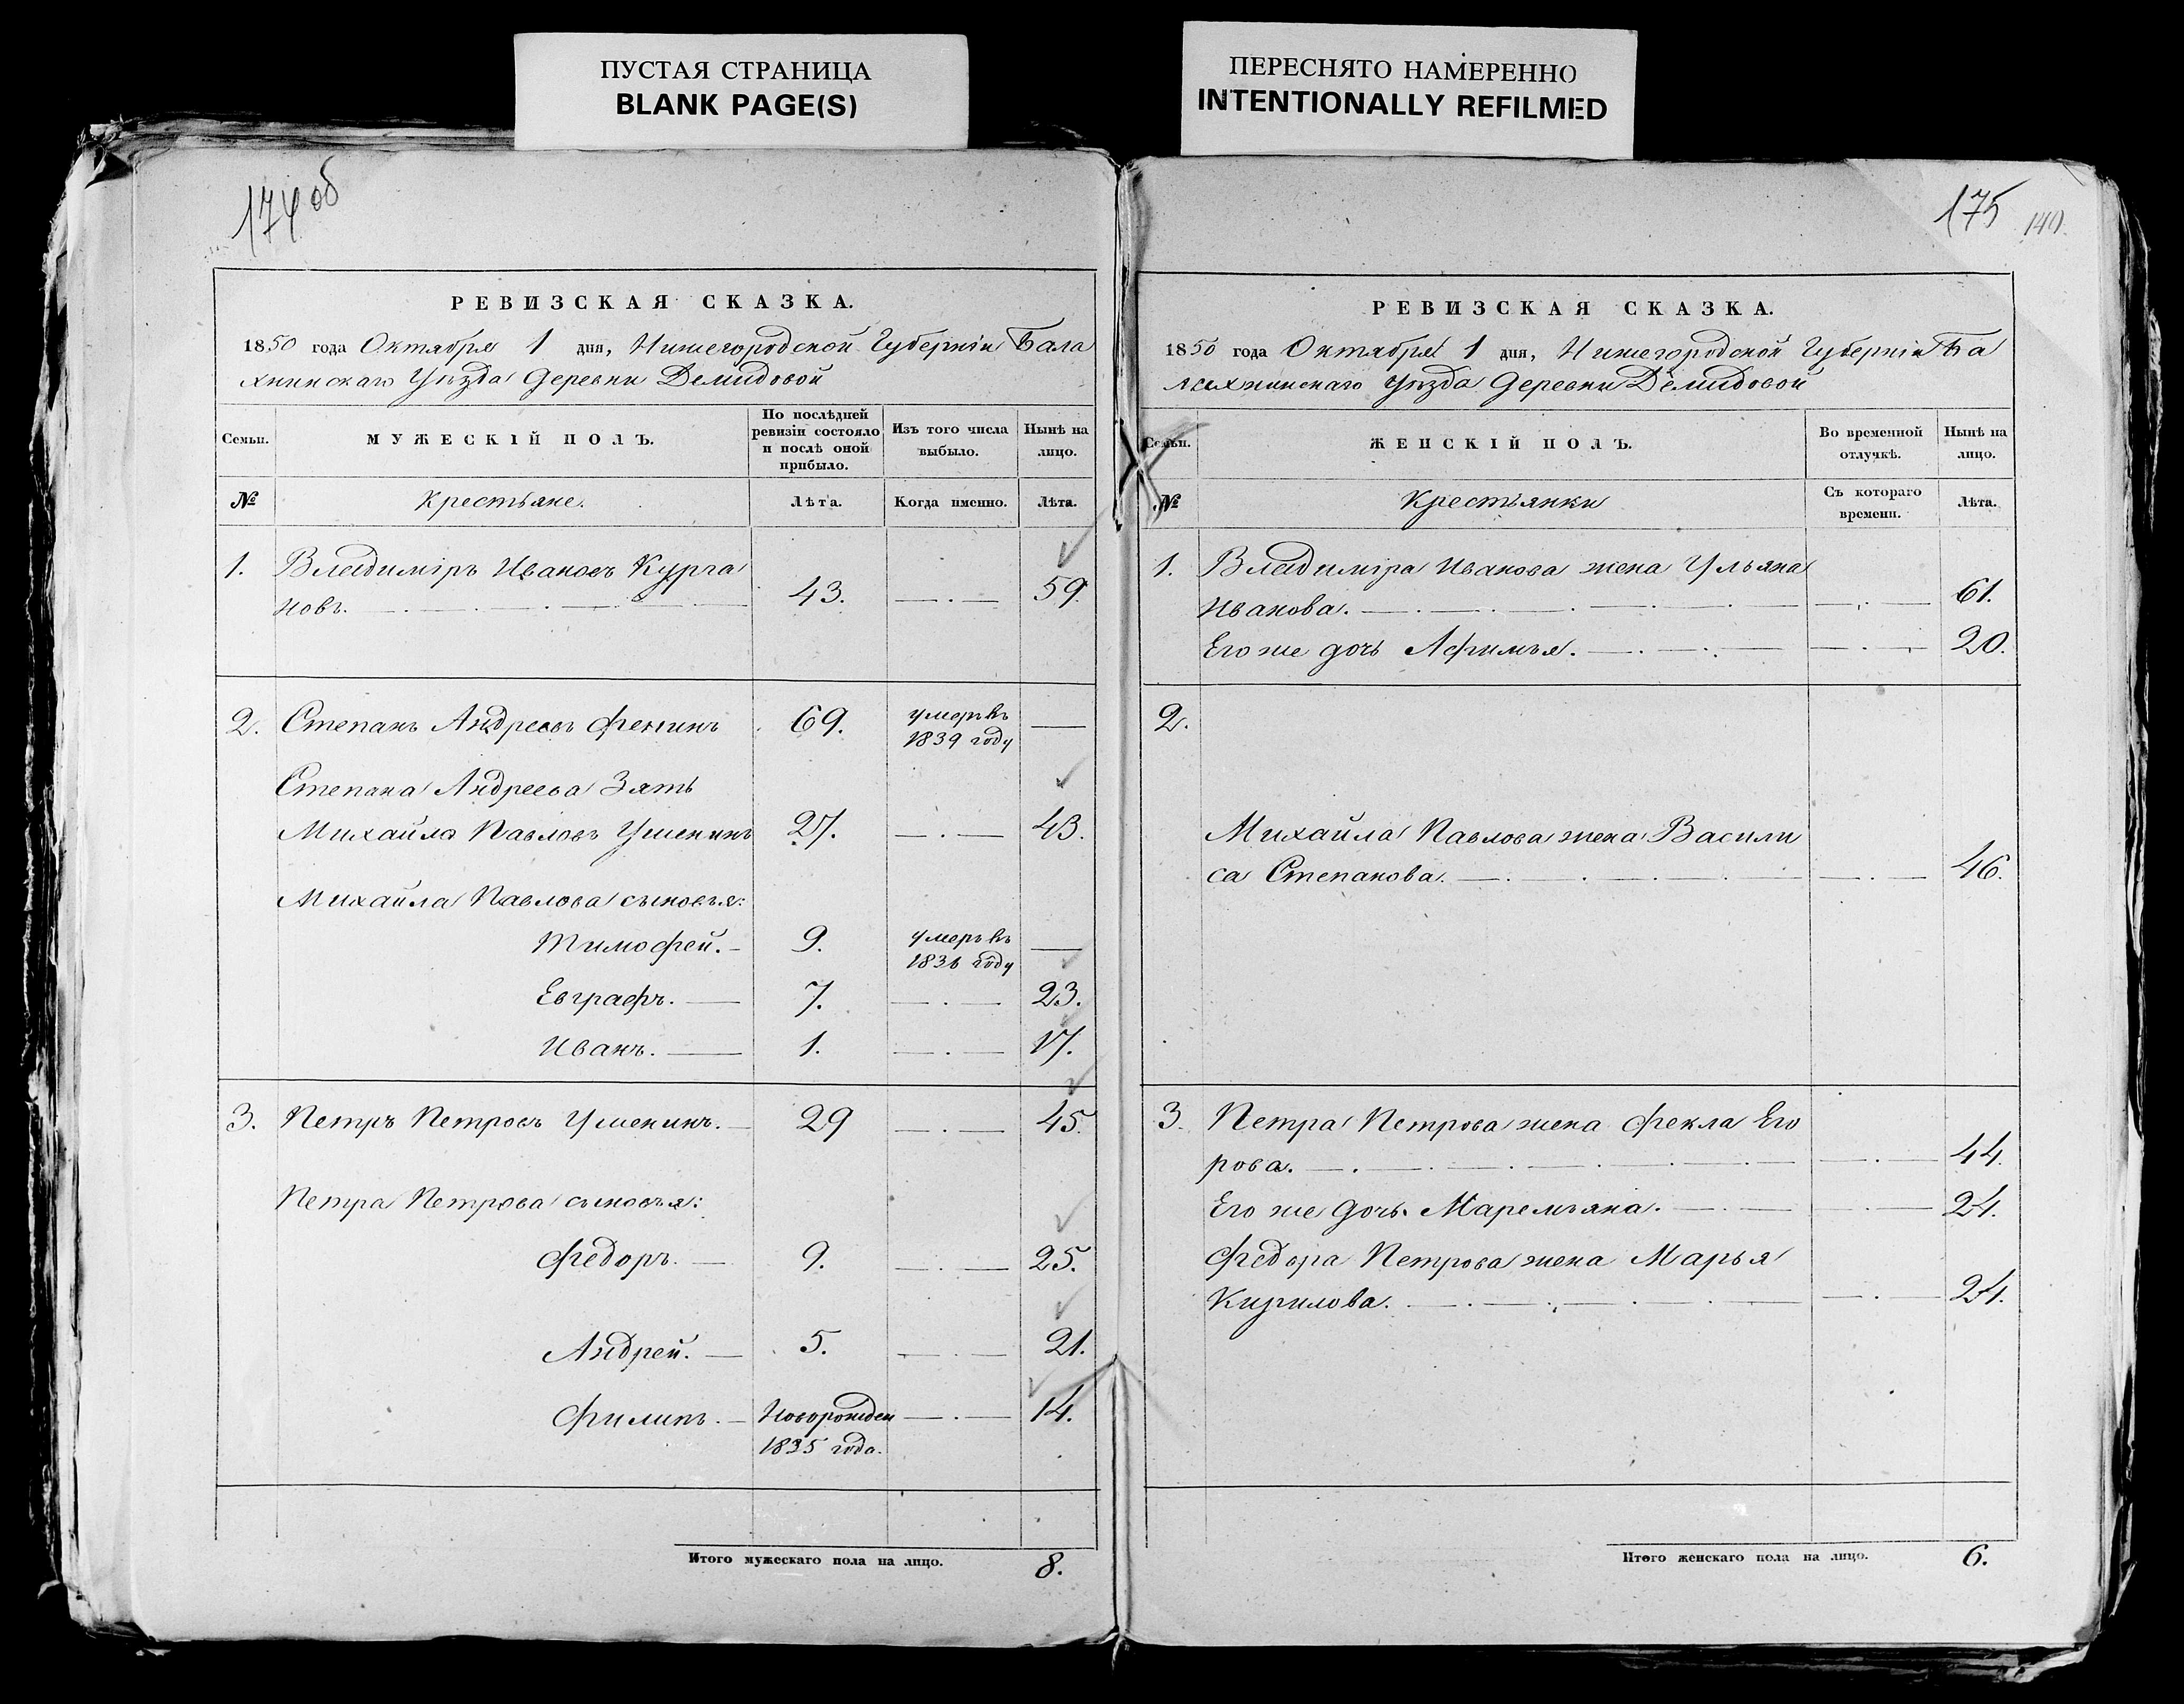 ПУСТАЯ СТРАНИЦА
BLANK PAGE(S)
ПЕРЕСНЯТО НАМЕРЕННО
INTENTIONALLY REFILMED
174 об
РЕВИЗСКАЯ СКАЗКА.
1850 года Октября 1 дня, Нижегородской Губерніи Бала
хнинскаго Уѣзда Деревни Демидовой
Семьи. МУЖЕСКІЙ ПОЛЪ. По послѣдней ревизіи состояло и послѣ оной прибыло. Изъ того числа выбыло. Нынѣ на лицо.
№ Крестьяне. Лѣта. Когда именно. Лѣта.
1. Владиміръ Ивановъ Курга
новъ. 43. 59.
2. Степанъ Андреевъ Фенинъ 69. умеръ въ
1839 году
Степана Андреева Зять
Михайла Павловъ Ушенинъ 27. 43.
Михайла Павлова сыновья:
Тимофей. 9. умеръ въ
1836 году
Евграфъ. 7. 23.
Иванъ. 1. 17.
3. Петръ Петровъ Ушенинъ. 29 45.
Петра Петрова сыновья:
Федоръ. 9. 25.
Андрей. 5. 21.
Филипъ. Новорожден 14.
1835 года.
Итого мужескаго пола на лицо. 8.
175 140
РЕВИЗСКАЯ СКАЗКА.
1850 года Октября 1 дня, Нижегородской Губерніи Ба
лахнинскаго Уѣзда Деревни Демидовой
Семьи. ЖЕНСКІЙ ПОЛЪ. Во временной отлучкѣ. Нынѣ на лицо.
№ Крестьянки Съ котораго времени. Лѣта.
1. Владиміра Иванова жена Ульяна
Иванова. 61.
Его же дочь Афимья. 20.
2.
Михайла Павлова жена Васили
са Степанова. 46.
3. Петра Петрова жена Фекла Его
рова. 44.
Его же дочь Маремьяна. 24.
Федора Петрова жена Марья
Кирилова. 24.
Итого женскаго пола на лицо. 6.